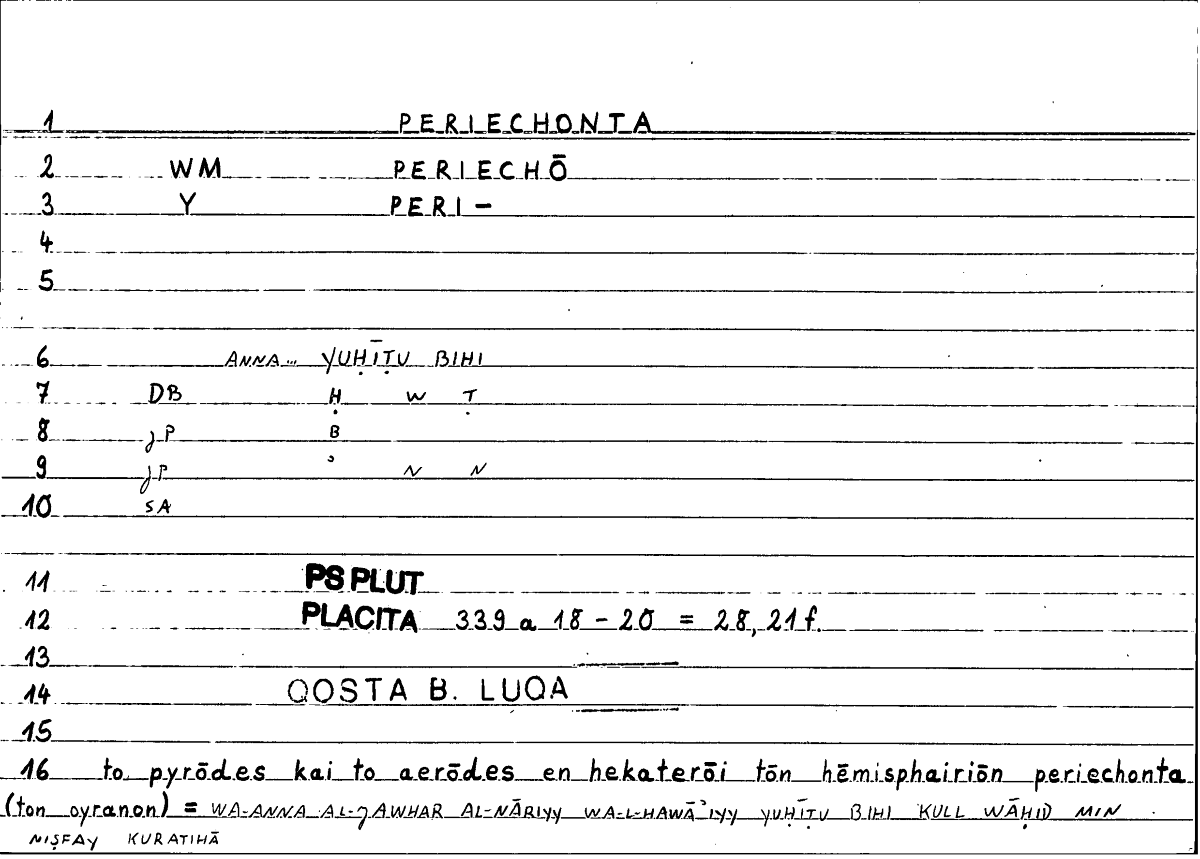 1 PERIECHONTA
2 WM PERIECHŌ
3 Y PERI-
4
5
6 ANNA... YUḤĪṬU BIHI
7 DB Ḥ W Ṭ
8 JP B
9 JP ʾ N N
10 SA
11 PS PLUT
12 PLACITA 339 a 18 - 20 = 28, 21 f.
13
14 QOSTA B. LUQA
15
16 to pyrōdes kai to aerōdes en hekaterōi tōn hēmisphairiōn periechonta
(ton oyranon) = WA-ANNA AL-JAWHAR AL-NĀRIYY WA-L-HAWĀʾIYY YUḤĪṬU BIHI KULL WĀḤID MIN
NIṢFAY KURATIHĀ